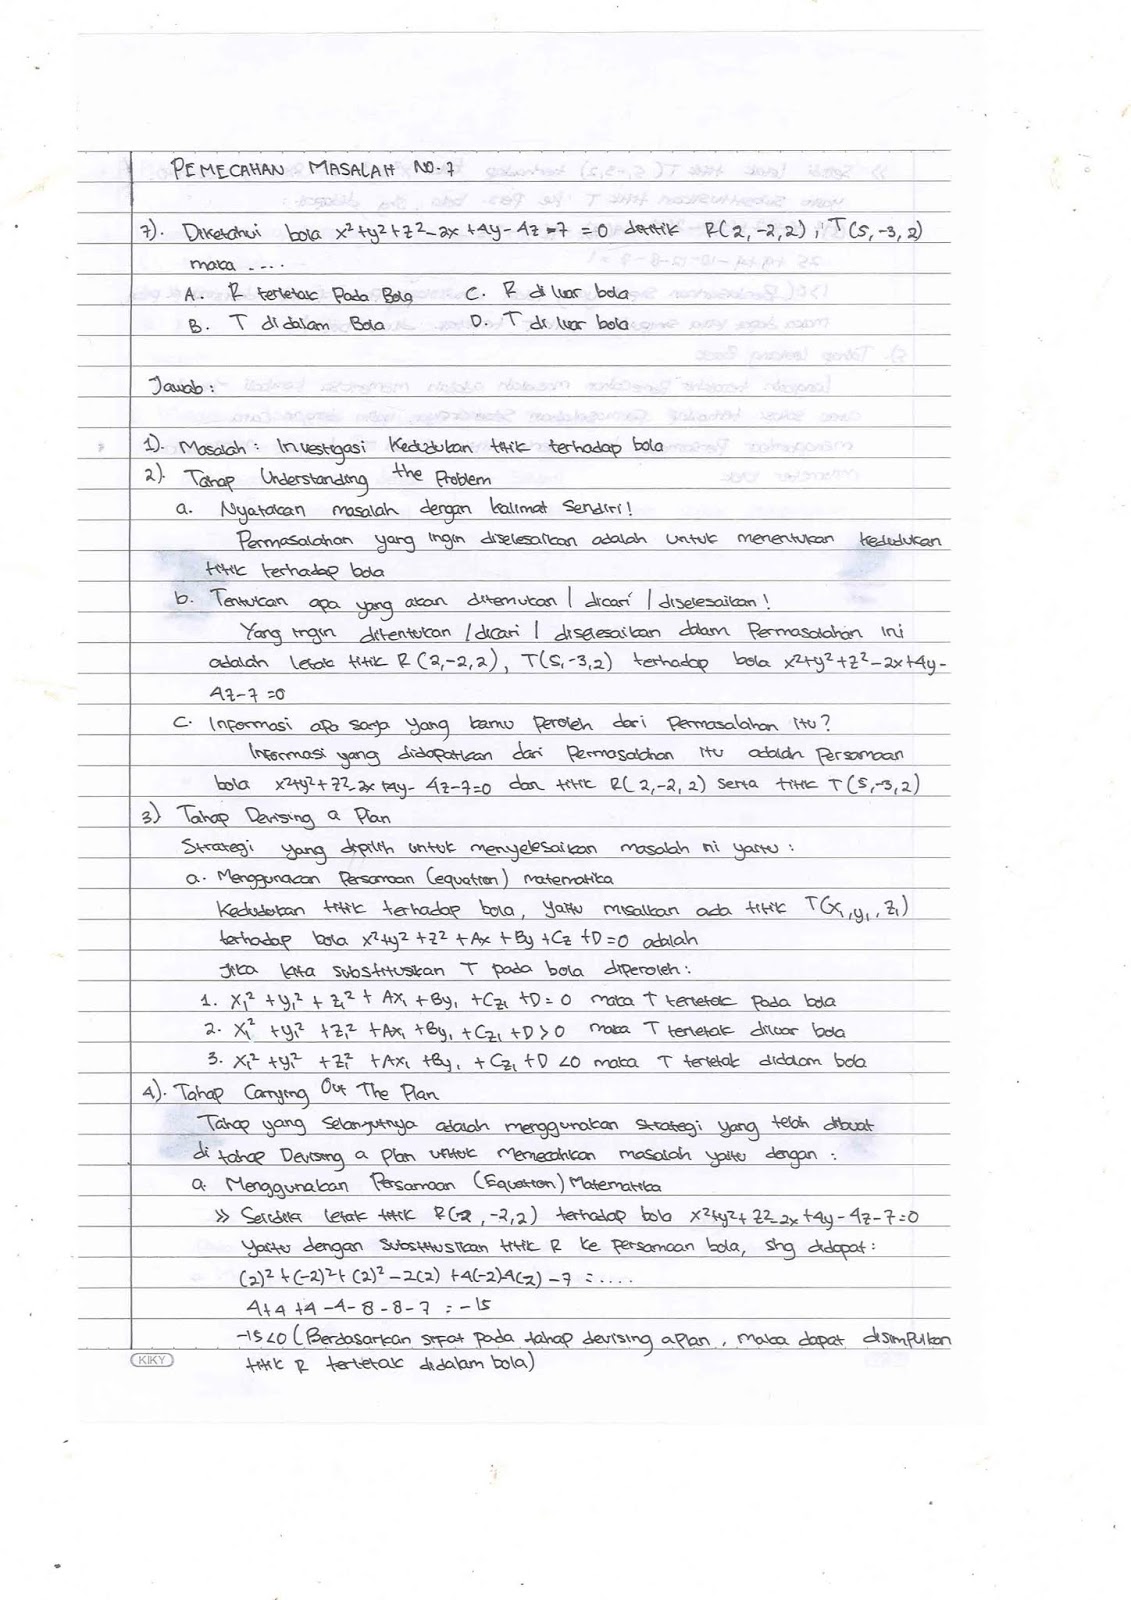 PEMECAHAN MASALAH NO.7
7). Diketahui bola x²+y²+z²-2x+4y-4z-7=0 dititik R(2,-2,2), T(5,-3,2)
maka ....
A. R terletak Pada Bola C. R diluar bola
B. T didalam Bola D. T diluar bola
Jawab:
1). Masalah: Investigasi Kedudukan titik terhadap bola
2). Tahap Understanding the Problem
a. Nyatakan masalah dengan kalimat sendiri!
Permasalahan yang ingin diselesaikan adalah untuk menentukan kedudukan
titik terhadap bola
b. Tentukan apa yang akan ditemukan / dicari / diselesaikan!
Yang ingin ditentukan / dicari / diselesaikan dalam Permasalahan ini
adalah letak titik R(2,-2,2), T(5,-3,2) terhadap bola x²+y²+z²-2x+4y-
4z-7=0
c. Informasi apa saja yang kamu peroleh dari Permasalahan itu?
Informasi yang didapatkan dari Permasalahan itu adalah Persamaan
bola x²+y²+z²-2x+4y-4z-7=0 dan titik R(2,-2,2) serta titik T(5,-3,2)
3) Tahap Devising a Plan
Strategi yang dipilih untuk menyelesaikan masalah ini yaitu:
a. Menggunakan Persamaan (equation) matematika
Kedudukan titik terhadap bola, yaitu misalkan ada titik T(x₁,y₁,z₁)
terhadap bola x²+y²+z²+Ax+By+Cz+D=0 adalah
Jika kita substitusikan T pada bola diperoleh:
1. x₁²+y₁²+z₁²+Ax₁+By₁+Cz₁+D=0 maka T terletak pada bola
2. x₁²+y₁²+z₁²+Ax₁+By₁+Cz₁+D>0 maka T terletak diluar bola
3. x₁²+y₁²+z₁²+Ax₁+By₁+Cz₁+D<0 maka T terletak didalam bola
4). Tahap Carrying Out The Plan
Tahap yang selanjutnya adalah menggunakan strategi yang telah dibuat
di tahap Devising a plan untuk memecahkan masalah yaitu dengan:
a. Menggunakan Persamaan (Equation) Matematika
>> Selidiki letak titik R(2,-2,2) terhadap bola x²+y²+z²-2x+4y-4z-7=0
Yaitu dengan substitusikan titik R ke persamaan bola, shg didapat:
(2)²+(-2)²+(2)²-2(2)+4(-2)-4(2)-7=....
4+4+4-4-8-8-7=-15
-15<0 (Berdasarkan sifat pada tahap devising a plan, maka dapat disimpulkan
titik R terletak didalam bola)
KIKY